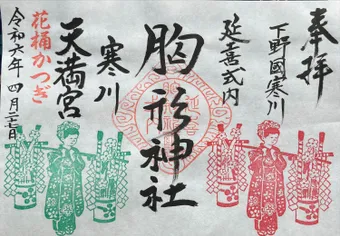 奉拝
下野國寒川
延喜式内
胸形神社
寒川
天満宮
花桶かつぎ
令和六年 四月二十七日